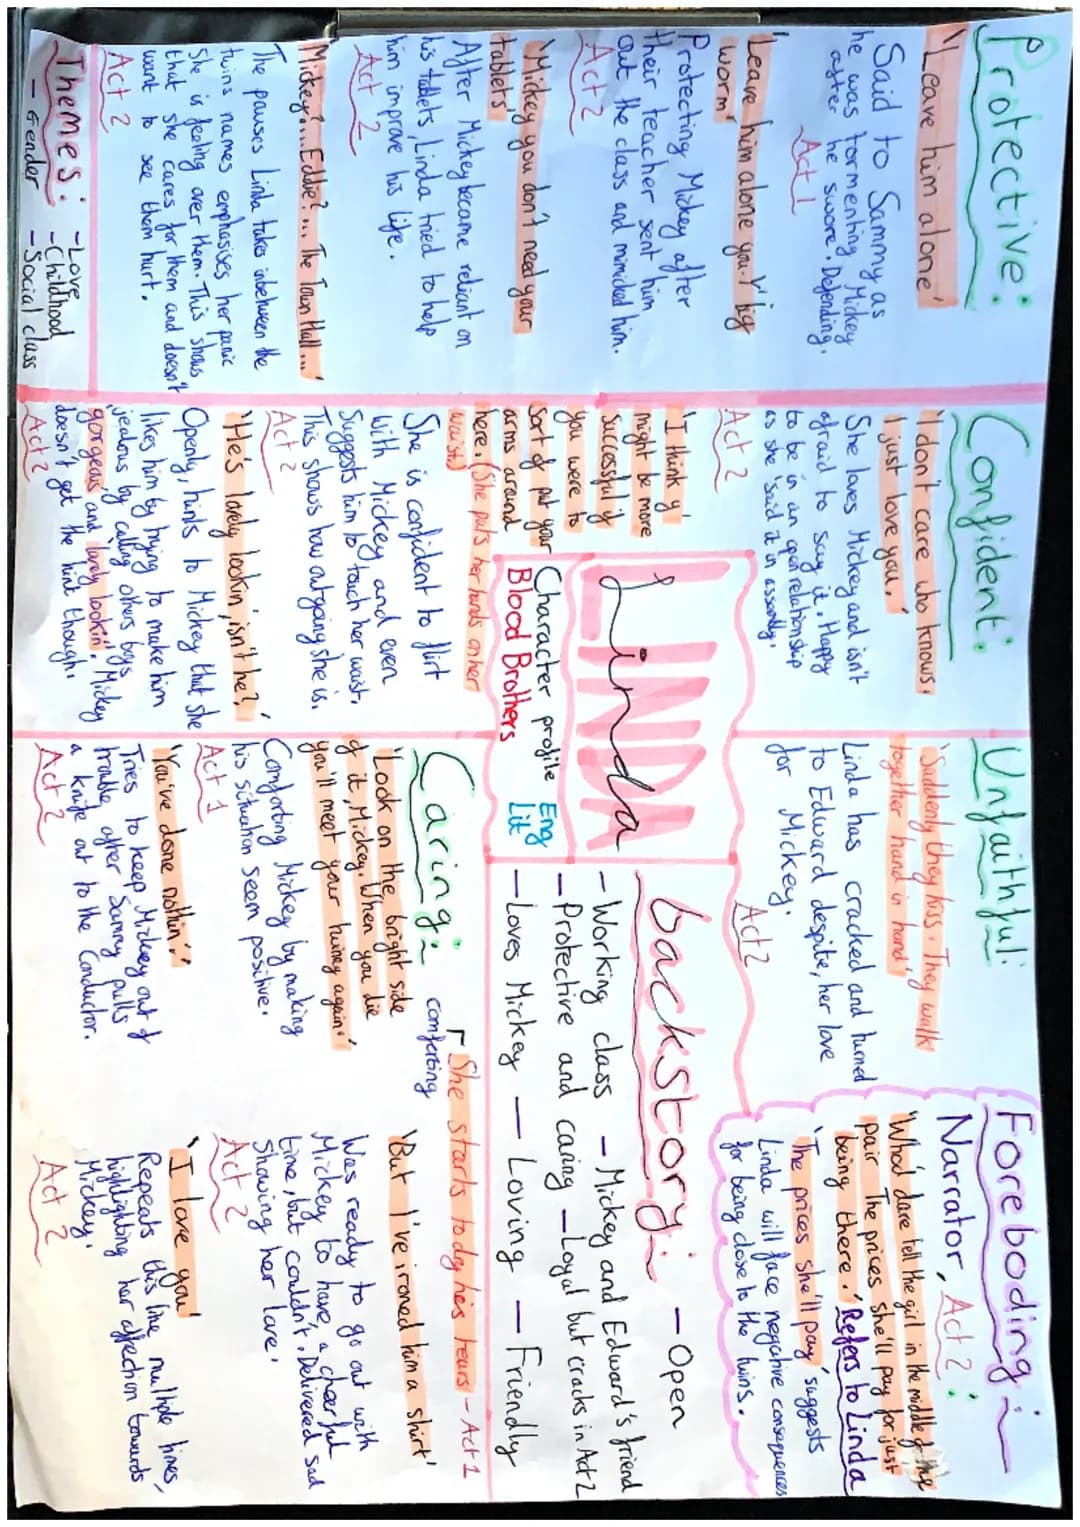 Protective:
'Leave him alone'
Said to Sammy as
he was tormenting Mickey
after he swore. Defending.
Act 1
'Leave him alone you..Y' big
worm'
Protecting Mickey after
their teacher sent him
out the class and mimicked him.
Act 2
'Mickey you don't need your
tablets'
After Mickey became reliant on
his tablets, Linda tried to help
him improve his life.
Act 2
'Mickey?... Eddie?... The Town Hall...'
The pauses Linda takes inbetween the
twins names emphasises her panic
She is feeling over them. This shows
that she cares for them and doesn't
want to see them hurt.
Act 2
Themes: - Love
- Gender - Childhood
- Social class
Confident:
'I don't care who knows.
I just love you.'
She loves Mickey and isn't
afraid to say it. Happy
to be in an open relationship
as she said it in assembly.
Act 2
'I think y'
might be more
successful if
you were to
sort of put your
arms around
here. (She puts her hands on her
waist)
She is confident to flirt
with Mickey and even
suggests him to touch her waist.
This shows how outgoing she is.
Act 2
'He's lovely lookin', isn't he?'
Openly, hints to Mickey that she
likes him by trying to make him
jealous by calling others boys
'gorgeous and lovely lookin'. Mickey
doesn't get the hint though.
Act 2
LINDA
Linda
Character profile Eng
Blood Brothers Lit
Unfaithful:
'Suddenly they kiss. They walk
together hand in hand'
Linda has cracked and turned
to Edward despite, her love
for Mickey.
Act 2
Foreboding:
Narrator, Act 2:
'Who'd dare tell the girl in the middle of the
pair The prices she'll pay for just
being there.' Refers to Linda
'The prices she'll pay' suggests
Linda will face negative consequences
for being close to the twins.
backstory: - Open
- Working class - Mickey and Edward's friend
- Protective and caring - Loyal but cracks in Act 2
- Loves Mickey - Loving - Friendly
Caring:
comforting
She starts to dry his tears - Act 1
'Look on the bright side
of it, Mickey. When you die
you'll meet your twiney again.'
Comforting Mickey by making
his situation seem positive.
Act 1
'You've done nothin'.'
Tries to keep Mickey out of
trouble after Sammy pulls
a knife out to the Conductor.
Act 2
'But I've ironed him a shirt'
Was ready to go out with
Mickey to have, a cheerful
time, but couldn't. Delivered sad
showing her love.
Act 2
'I love you'
Repeats this line multiple times,
highlighting her affection towards
Mickey.
Act 2